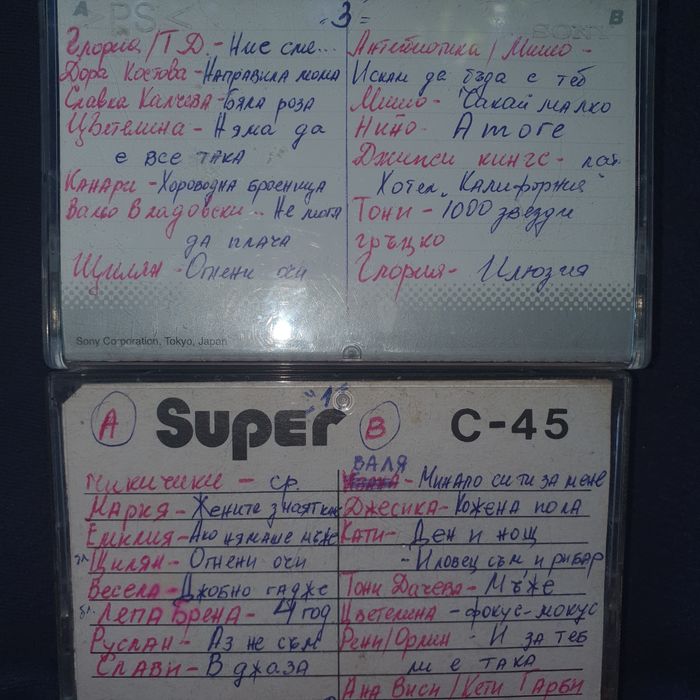 A >PS< "3" SONY B
Глория/Т.Д. - Ние сме...
Дора Костова - Направила мома
Славка Калчева - Бяла роза
Цветелина - Няма да
е все така
Канари - Хороводна броеница
Вальо Владовски... Не мога
да плача
Щилян - Огнени очи
Антибиотика/Мишо -
Искам да бъда с теб
Мишо - Чакай малко
Нино - Аmоге
Джипси кингс - лат.
Хотел "Калифорния"
Тони - 1000 звезди
гръцко
Глория - Илюзия
Sony Corporation, Tokyo, Japan
A Super "1" B C-45
Чикичики - ср.
Мария - Жените знаят как
Емилия - Ако нямаше мъже
Щилян - Огнени очи
Весела - Джобно гадже
Лепа Брена - 4 год
Руслан - Аз не съм
Слави - В джаза
ВАЛЯ - Минало си ти за мене
Джесика - Кожена пола
Кати - Ден и нощ
- Иловец съм, и рибар
Тони Дачева - Мъже
Цветелина - фокус-мокус
Рени/Орлин - И за теб
ли е така
Ана Виси/Кети Гарби